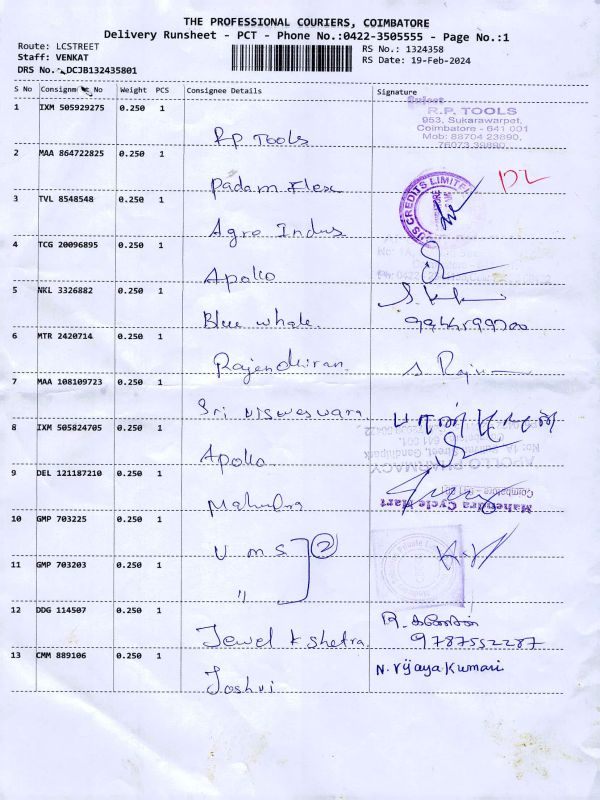 THE PROFESSIONAL COURIERS, COIMBATORE
Delivery Runsheet - PCT - Phone No.:0422-3505555 - Page No.:1
Route: LCSTREET
RS No.: 1324358
Staff: VENKAT
RS Date: 19-Feb-2024
DRS No.: DCJB132435801
S No Consignment No Weight PCS Consignee Details Signature
1 IXM 505929275 0.250 1 R.P Tools
R.P. TOOLS
953, Sukarawarpet,
Coimbatore - 641 001
Mob: 88704 23890,
76073 39890
2 MAA 864722825 0.250 1 Padam Flexe DL
3 TVL 8548548 0.250 1 Agro Indus
4 TCG 20096895 0.250 1 Apollo
5 NKL 3326882 0.250 1 Blue whale.
6 MTR 2420714 0.250 1 Rajendhiran. S. Raju
7 MAA 108109723 0.250 1 Sri Visweswara
8 IXM 505824705 0.250 1 Apollo
APOLLO PHARMACY
9 DEL 121187210 0.250 1 Mahendra
Mahendra Cycle Mart
10 GMP 703225 0.250 1 U.M.S. 2
11 GMP 703203 0.250 1 "
12 DDG 114507 0.250 1 Jewel kshetra. R. கணேசன்
9787552287
13 CMM 889106 0.250 1 Joshvi N. Vijaya Kumari